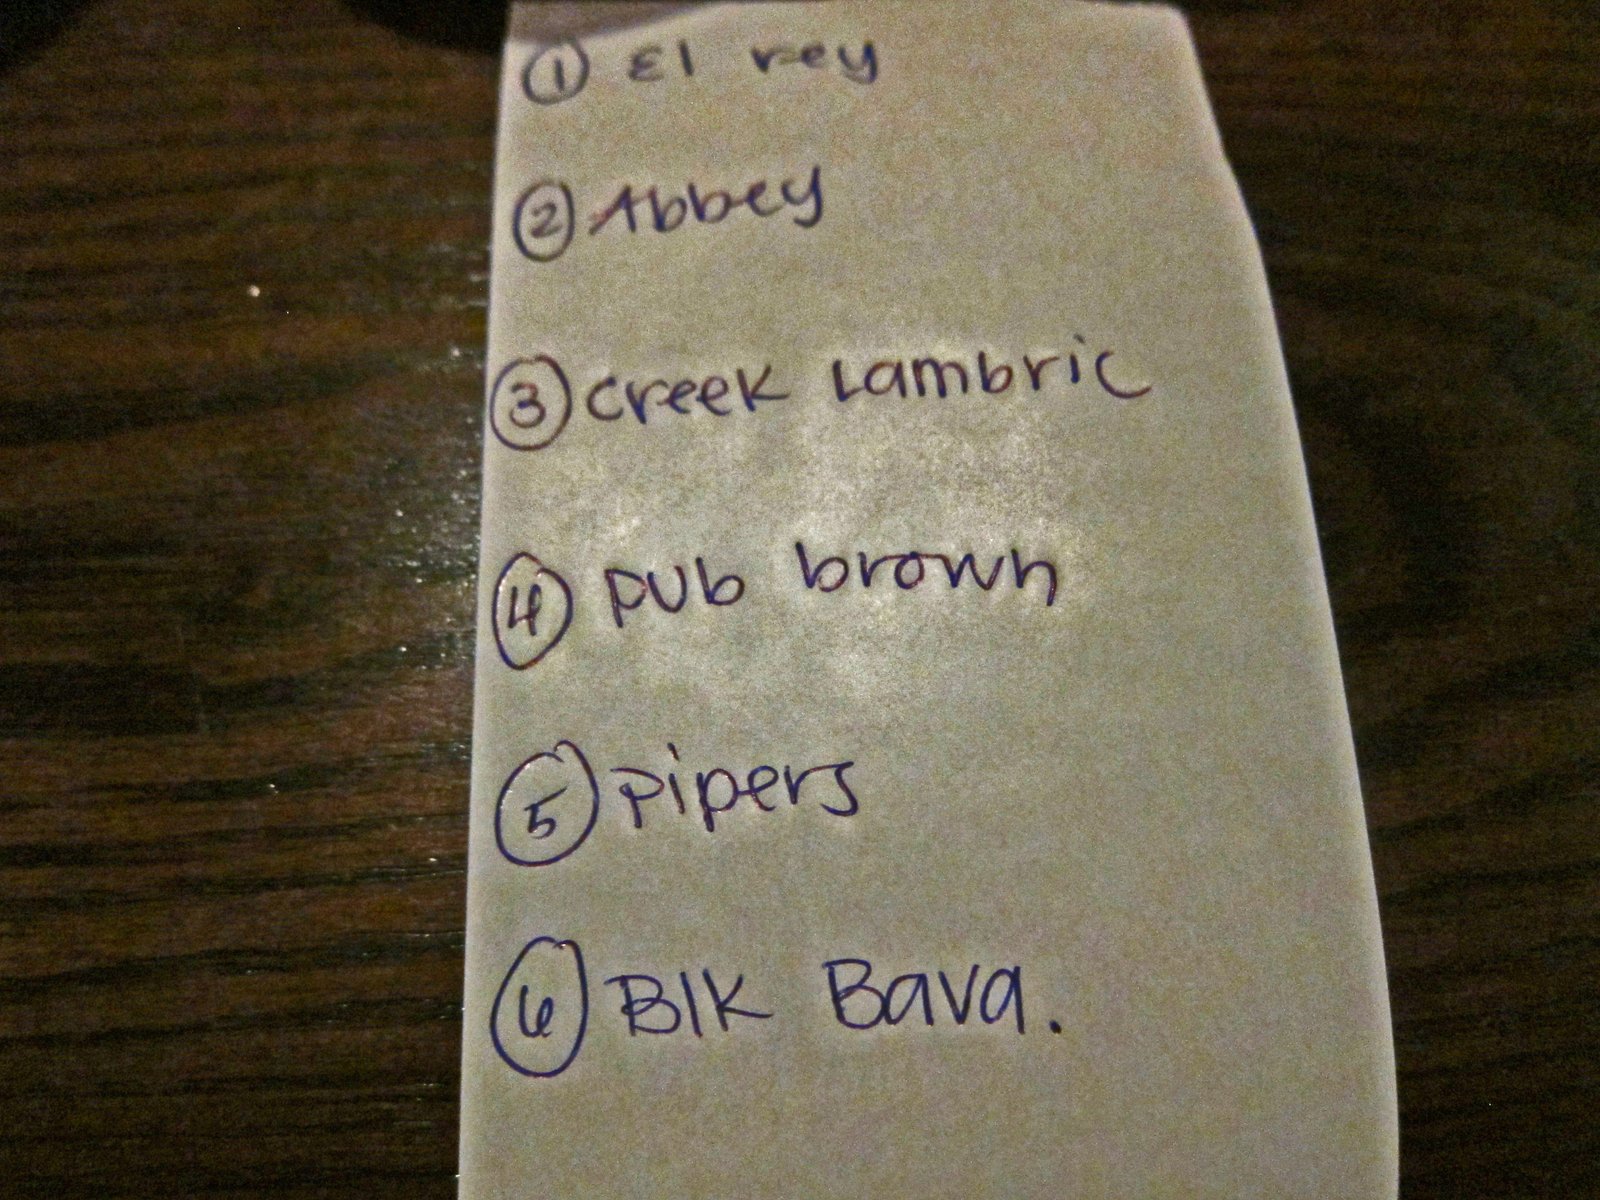 ① El rey
② Abbey
③ Creek Lambric
④ Pub brown
⑤ Pipers
⑥ Blk Bava.